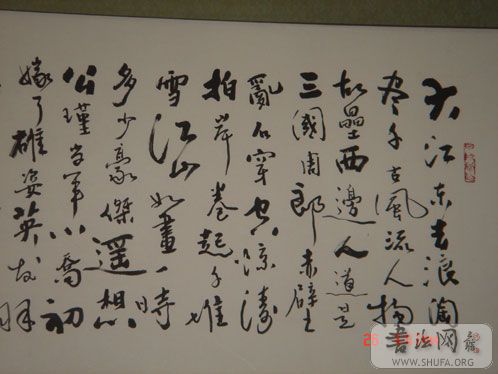 大江東去浪淘
盡千古風流人物
故壘西邊人道是
三國周郎赤壁
亂石穿空惊濤
拍岸卷起千堆
雪江山如畫一時
多少豪傑遥想
公瑾當年小喬初
嫁了雄姿英發羽
26
書法网
WWW.SHUFA.ORG